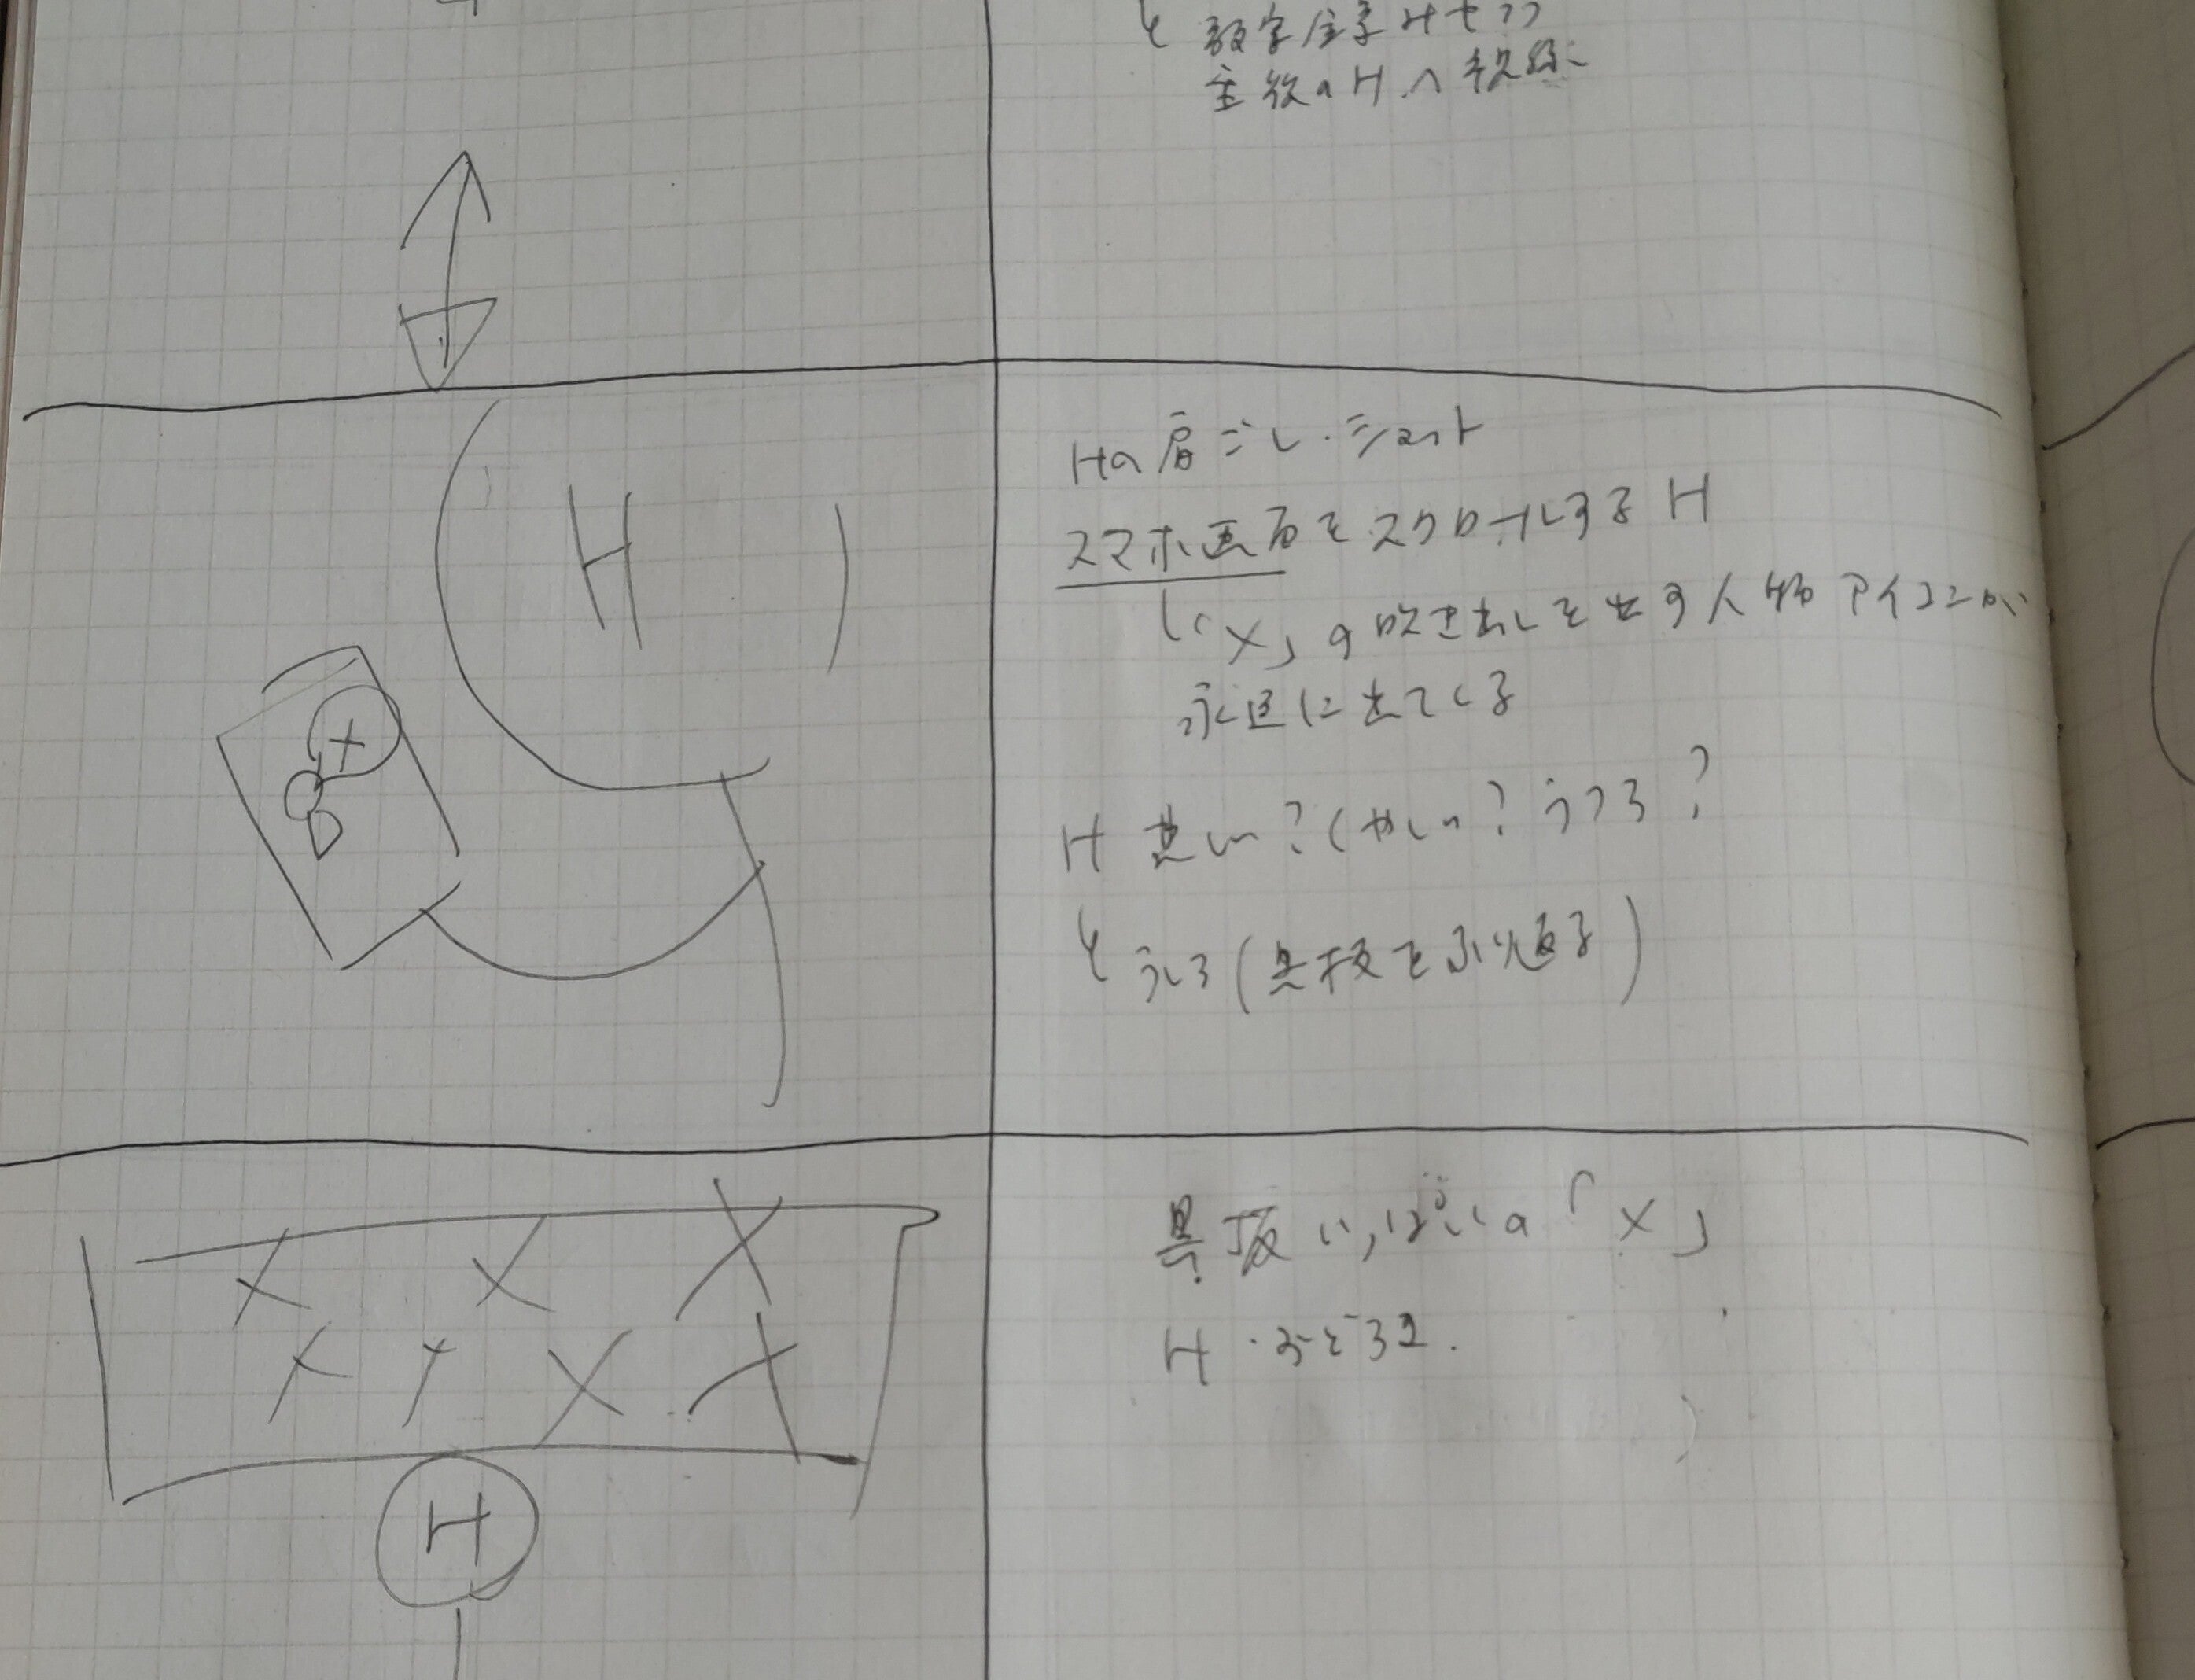 数字全景みせつつ
主役のHへ視線
Hの肩ごし・ショット
スマホ画面をスクロールするH
「X」の吹き出しを出す人物アイコンが
永遠に出てくる
X
H
H 悲しい?くやしい?うつろ?
うしろ(黒板をふり返る)
黒板いっぱいの「X」
X X X
H おどろき.
X X X X
H